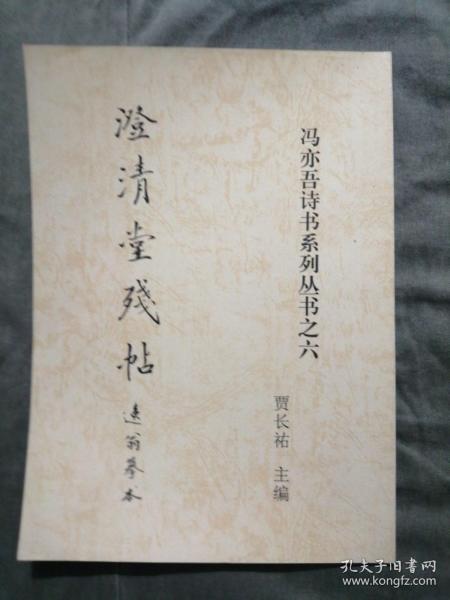 冯亦吾诗书系列丛书之六
贾长祐 主编
澄清堂残帖
迻翁摹本
孔夫子旧书网
www.kongfz.com